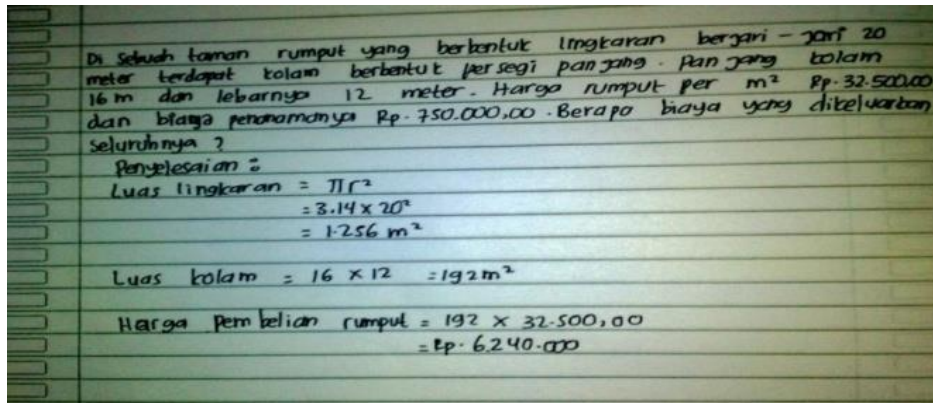 Di sebuah taman rumput yang berbentuk lingkaran berjari - jari 20
meter terdapat kolam berbentuk persegi panjang. Panjang kolam
16 m dan lebarnya 12 meter. Harga rumput per m² Rp. 32.500,00
dan biaya penanamanya Rp. 750.000,00. Berapa biaya yang dikeluarkan
seluruhnya ?
Penyelesaian :
Luas lingkaran = πr²
= 3.14 x 20²
= 1.256 m²
Luas kolam = 16 x 12 = 192 m²
Harga Pembelian rumput = 192 x 32.500,00
= Rp. 6.240.000